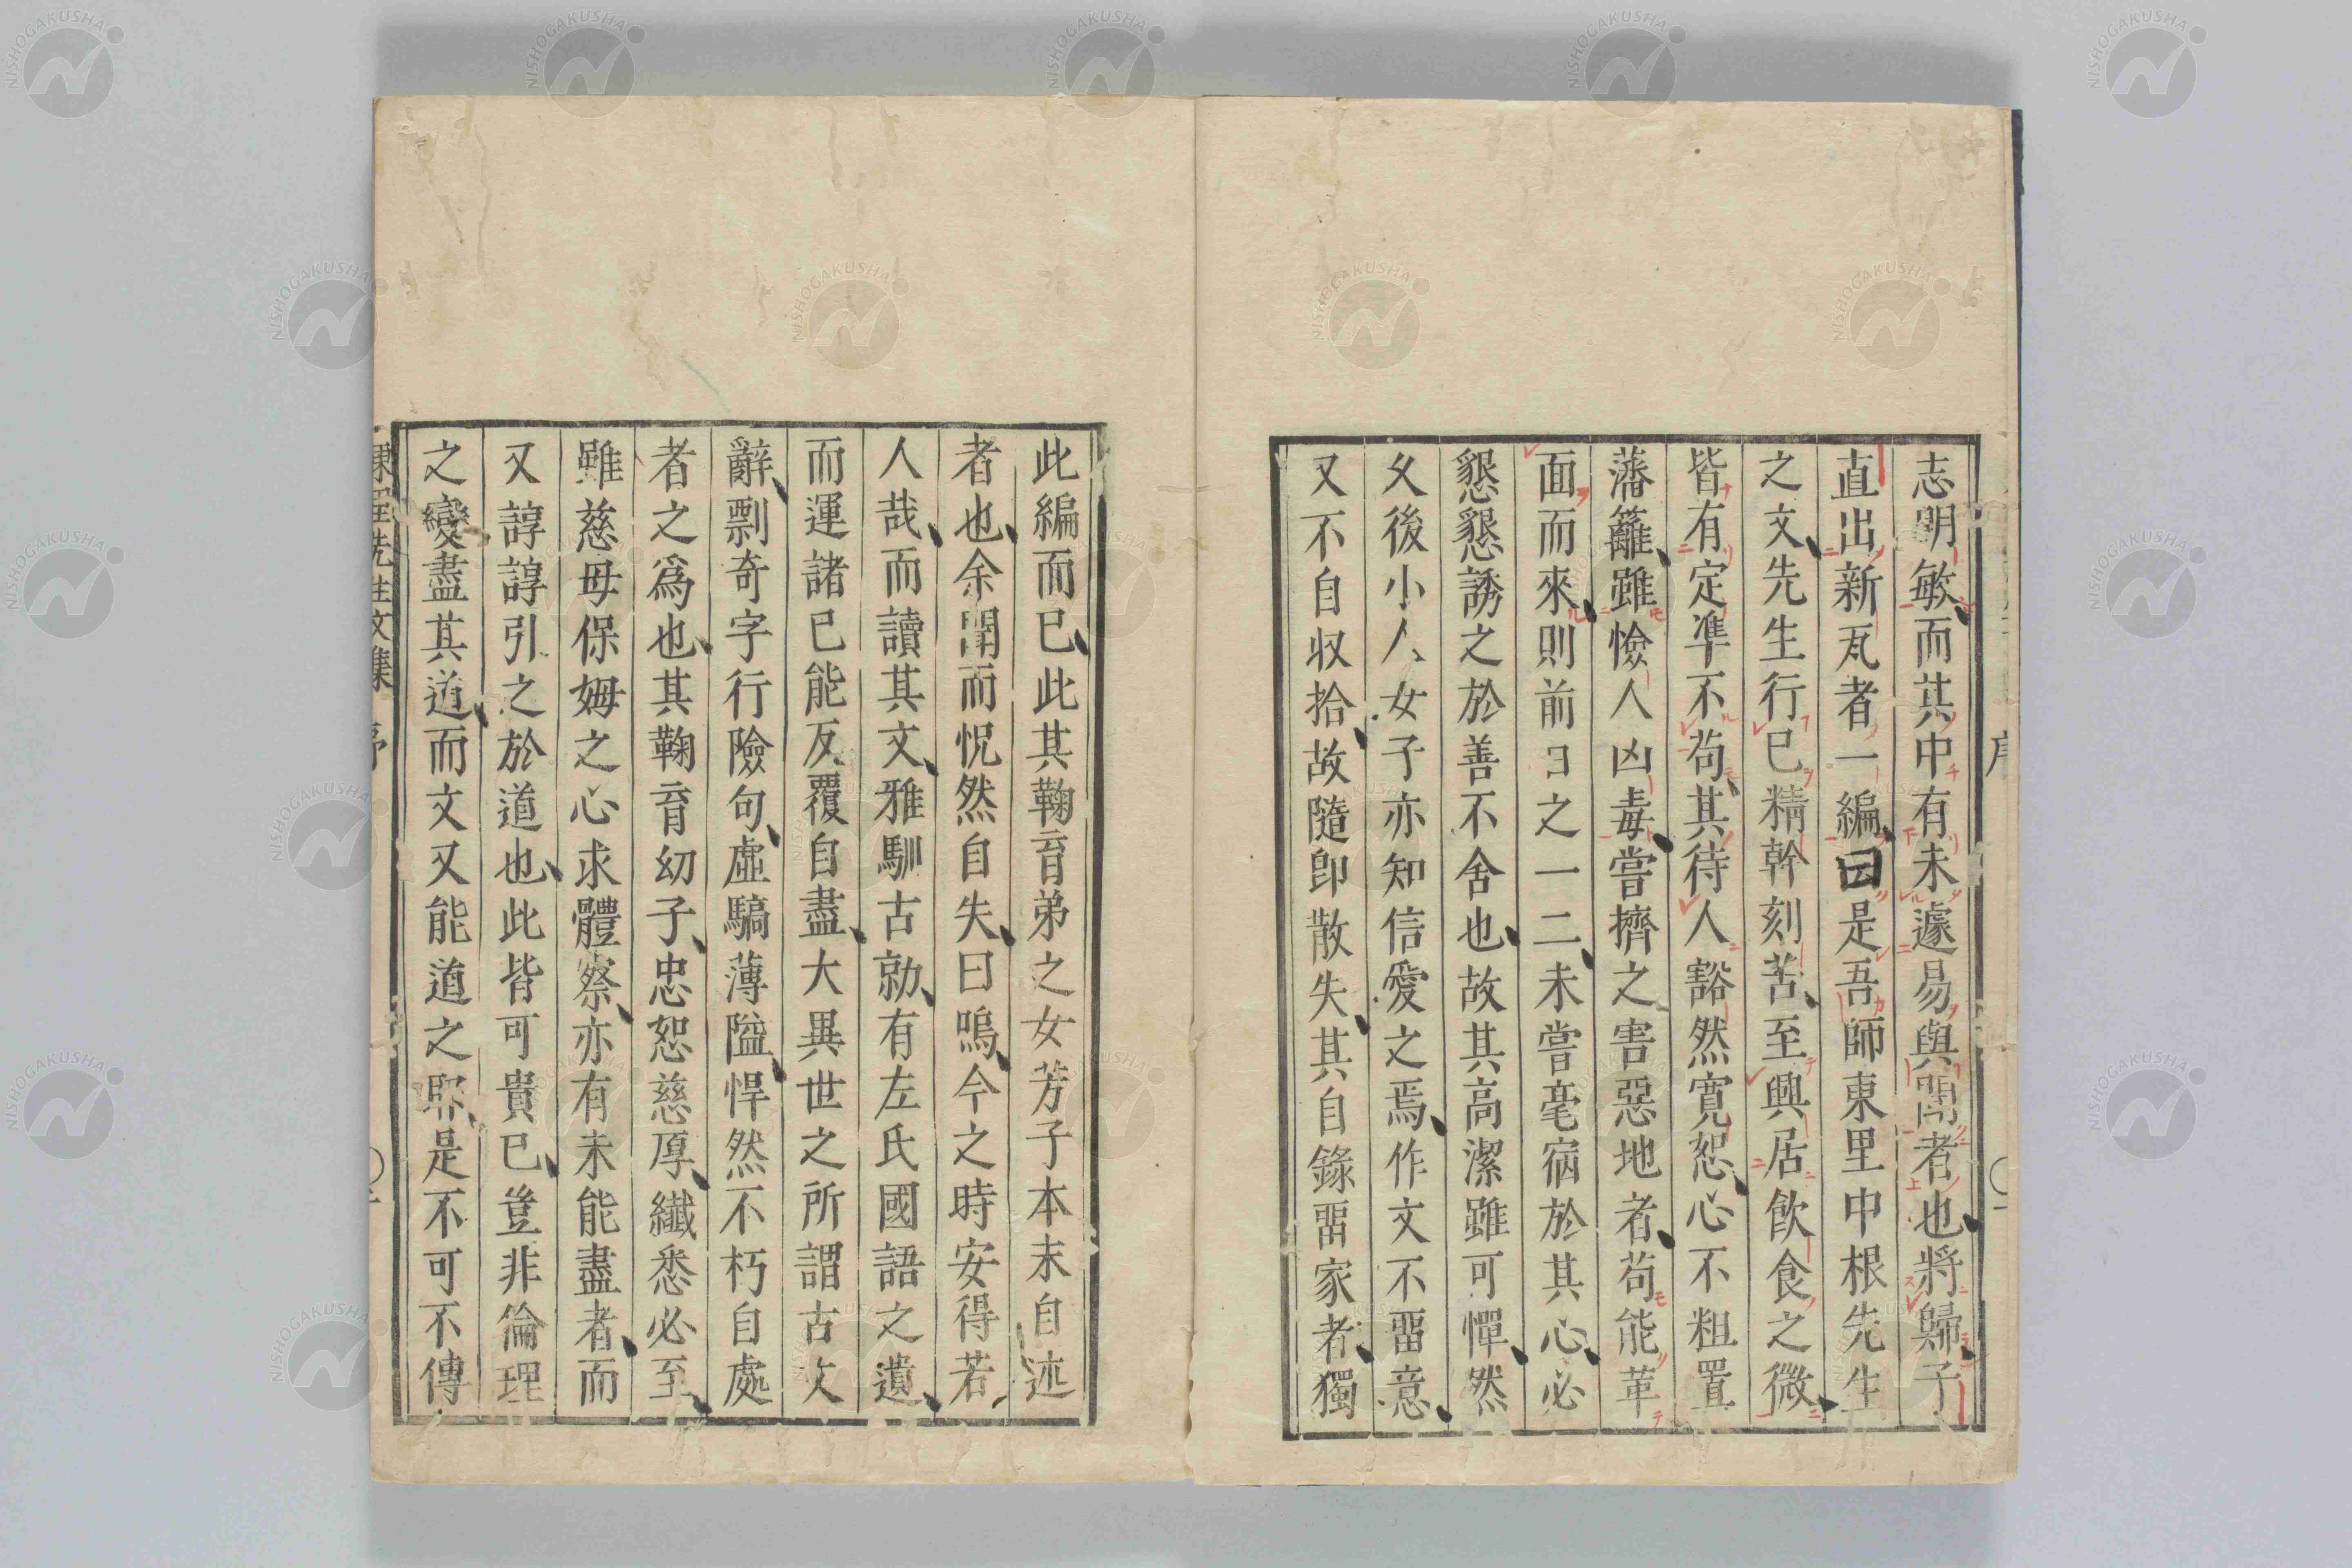 志明敏、而其中有未遽易與聞者也、將歸、子
直出新瓦者一編、曰是吾師東里中根先生
之文、先生行已精幹刻苦、至興居飮食之微、
皆有定準不苟、其待人豁然寬恕、心不粗置
藩籬、雖憸人凶毒、嘗擠之害惡地者、苟能革
面而來、則前日之一二、未嘗毫宿於其心、必
懇懇誘之於善不舍也、故其高潔雖可憚、然
夂後小人女子亦知信愛之焉、作文不畱意、
又不自収拾、故隨卽散失、其自錄畱家者、獨
此編而已、此其鞠育弟之女芳子本末自述
者也、余聞而怳然自失、曰嗚、今之時安得若
人哉、而讀其文、雅馴古勍、有左氏國語之遺、
而運諸已能反覆自盡、大異世之所謂古文
辭、剽奇字行險句、虛驕薄隘、悍然不朽自處
者之爲也、其鞠育幼子、忠恕慈厚、纎悉必至、
雖慈母保姆之心求體察、亦有未能盡者、而
又諄諄引之於道也、此皆可貴已、豈非倫理
之變盡其道、而文又能道之耶、是不可不傳
東里先生文集 序
序
NISHOGAKUSHA